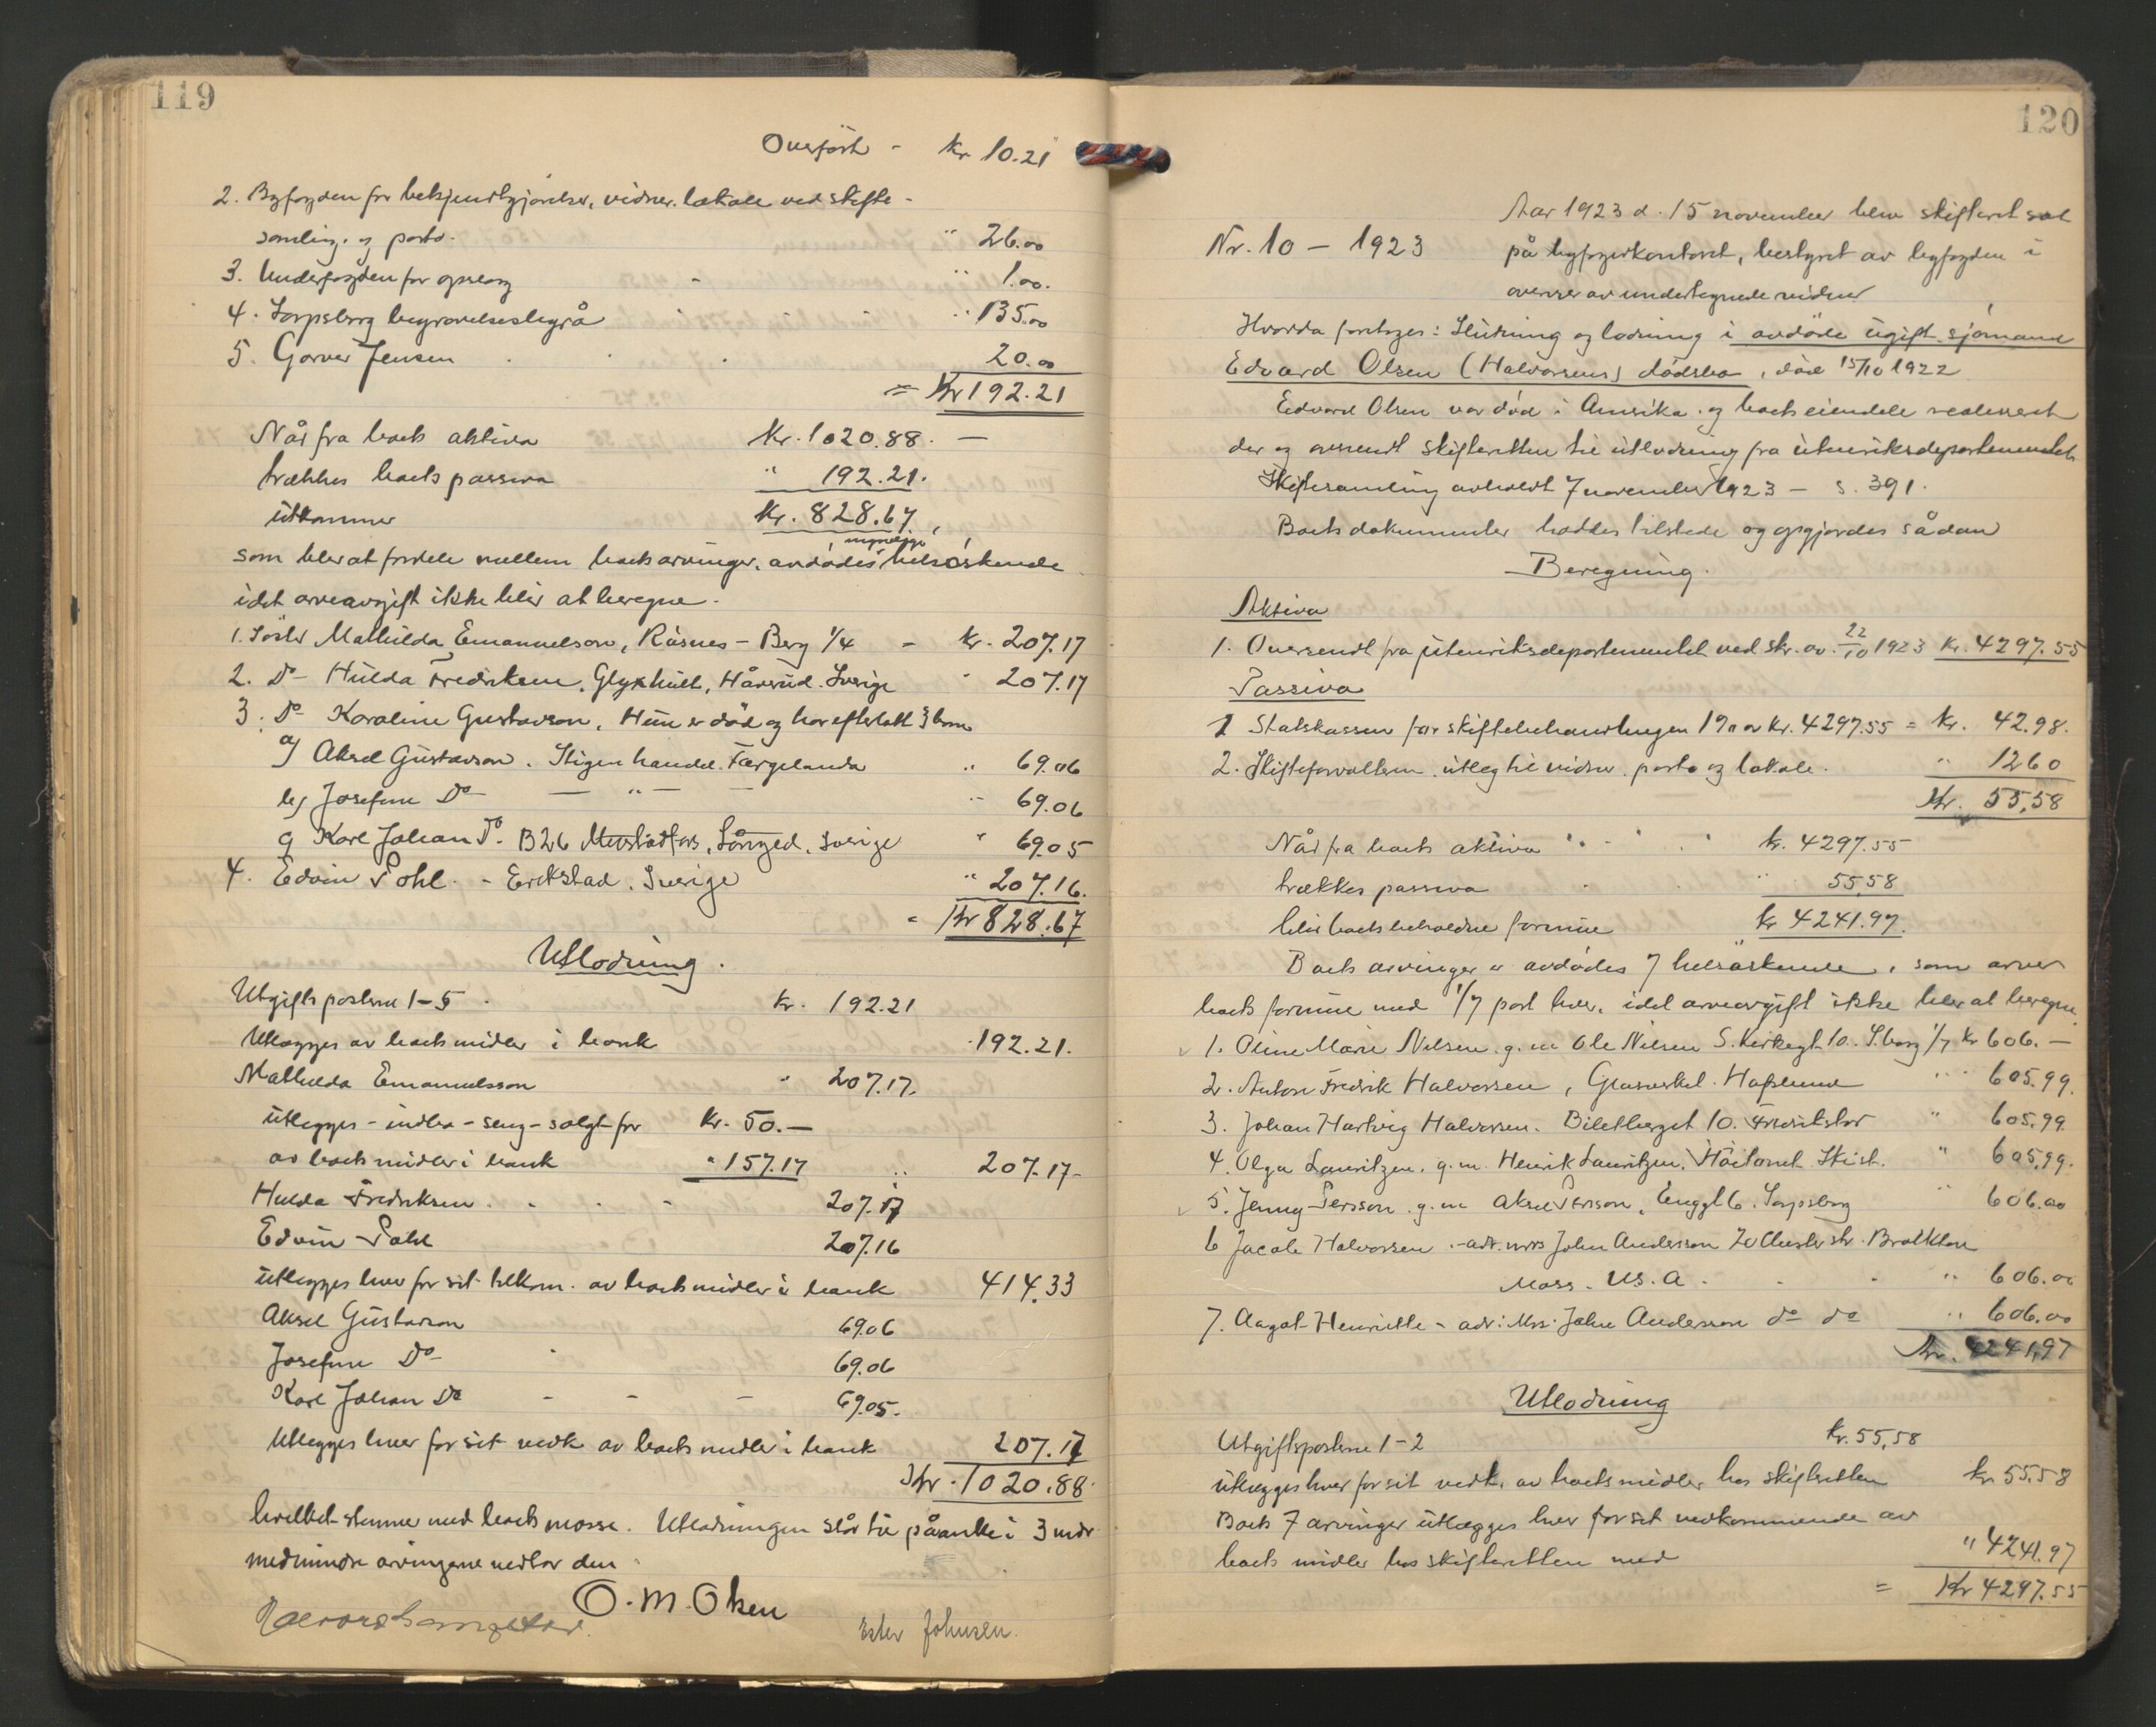 119
Overført - Kr 10.21
2. Byfogden for bekjendtgjørelser, vidner. lokale ved skifte-
samling. og porto. " 26.00
3. Underfogden for opsang - " 1.00.
4. Sarpsborg begravelsesbyrå " 135.00
5. Garver Jensen 20.00
= Kr 192.21
Når fra boets aktiva Kr. 1020.88. —
trækkes boets passiva " 192.21.
utkommer Kr. 828.67,
myndige
som blir at fordele mellem boets arvinger, avdødes helsøskende
idet arveavgift ikke blir at beregne.
1. Søster Mathilda Emanuelson, Råsnes - Berg 1/4 - Kr. 207.17
2. Do Hulda Fredriksen, Glyxhult, Håverud. Sverige " 207.17
3. Do Karoline Gustavson, Hun er død og har efterlatt 3 barn
a) Aksel Gustavson. Stigen handel. Færgelanda " 69.06
b) Josefine Do — " — " 69.06
c) Karl Johan Do. B26 Mustadfors, Långed, Sverige " 69.05
4. Edvin Pohl. - Erikstad. Sverige " 207.16.
= Kr 828.67
Utlodning.
Utgiftsposterne 1-5. Kr. 192.21
Utlægges av boets midler i bank 192.21.
Mathilda Emanuelsson " 207.17.
utlegges - indbo - seng - solgt for Kr. 50.—
av boets midler i bank " 157.17 " 207.17-
Hulda Fredriksen 207.17
Edvin Pohl 207.16
utlegges hver for sit tilkom. av boets midler i bank 414.33
Aksel Gustavson 69.06
Josefine Do 69.06
Karl Johan Do - - - 69.05.
Utlegges hver for sit vedk. av boets midler i bank 207.17
Kr. 1020.88.
hvilket stemmer med boets masse. Utlodningen står til påanke i 3 mdr
medmindre arvingerne vedtar den.
O. M. Olsen
Ester Johnsen.
120
Nr. 10 - 1923
Aar 1923 d. 15 november blev skifteret sat
på byfogedkontoret, bestyret av byfogden i
overvær av undertegnede vidner
Hvorda foretoges: Slutning og lodning i avdøde ugift sjømand
Edvard Olsen (Halvorsens) dødsbo, død 15/10 1922
Edvard Olsen var død i Amerika. og boets eiendele realisert
der og oversendt skifteretten til utlodning fra utenriksdepartementet
Skiftesamling avholdt 7 november 1923 - s. 391.
Boets dokumenter haddes tilstede og opgjordes sådan
Beregning.
Aktiva
1. Oversendt fra utenriksdepartementet ved skr. av. 22/10 1923 Kr. 4297.55
Passiva
1 Statskassen for skiftebehandlingen 1% av Kr. 4297.55 = Kr. 42.98.
2. Skifteforvalteren utleg til vidner, porto og lokale. " 12.60
Kr. 55,58
Når fra boets aktiva " kr. 4297.55
trækkes passiva " 55,58
blir boets beholdne formue kr 4241.97.
Boets arvinger er avdødes 7 helsøskende, som arver
boets formue med 1/7 part hver, idet arveavgift ikke blir at beregne.
1. Oline Marie Nilsen. g. m Ole Nilsen S. Kirkegt 10. S.borg 1/7 kr 606.—
2. Anton Fredrik Halvorsen, Glasverket. Hafslund " 605.99.
3. Johan Hartvig Halvorsen. Biletberget 10. Fredrikstad " 605.99
4. Olga Lauritzen, g. m. Henrik Lauritzen, Skist. " 605,99.
5. Jenny Persson. g. m Aksel Persson, Enggt 6. Sarpsborg " 606.00
6 Jacob Halvorsen. - adr. mrs John Anderson str. Brockton
Mass. U.S.A. " 606.00
7. Aagot Henriette - adr: Mrs. John Anderson do do " 606.00
Kr. 4241,97
Utlodning
Utgiftsposterne 1-2 Kr. 55,58
utlægges hver for sit vedk. av boets midler hos skifteretten kr 55.58
Boets 7 arvinger utlægges hver for sit vedkommende av
boets midler hos skifteretten med " 4241.97
= Kr 4297.55